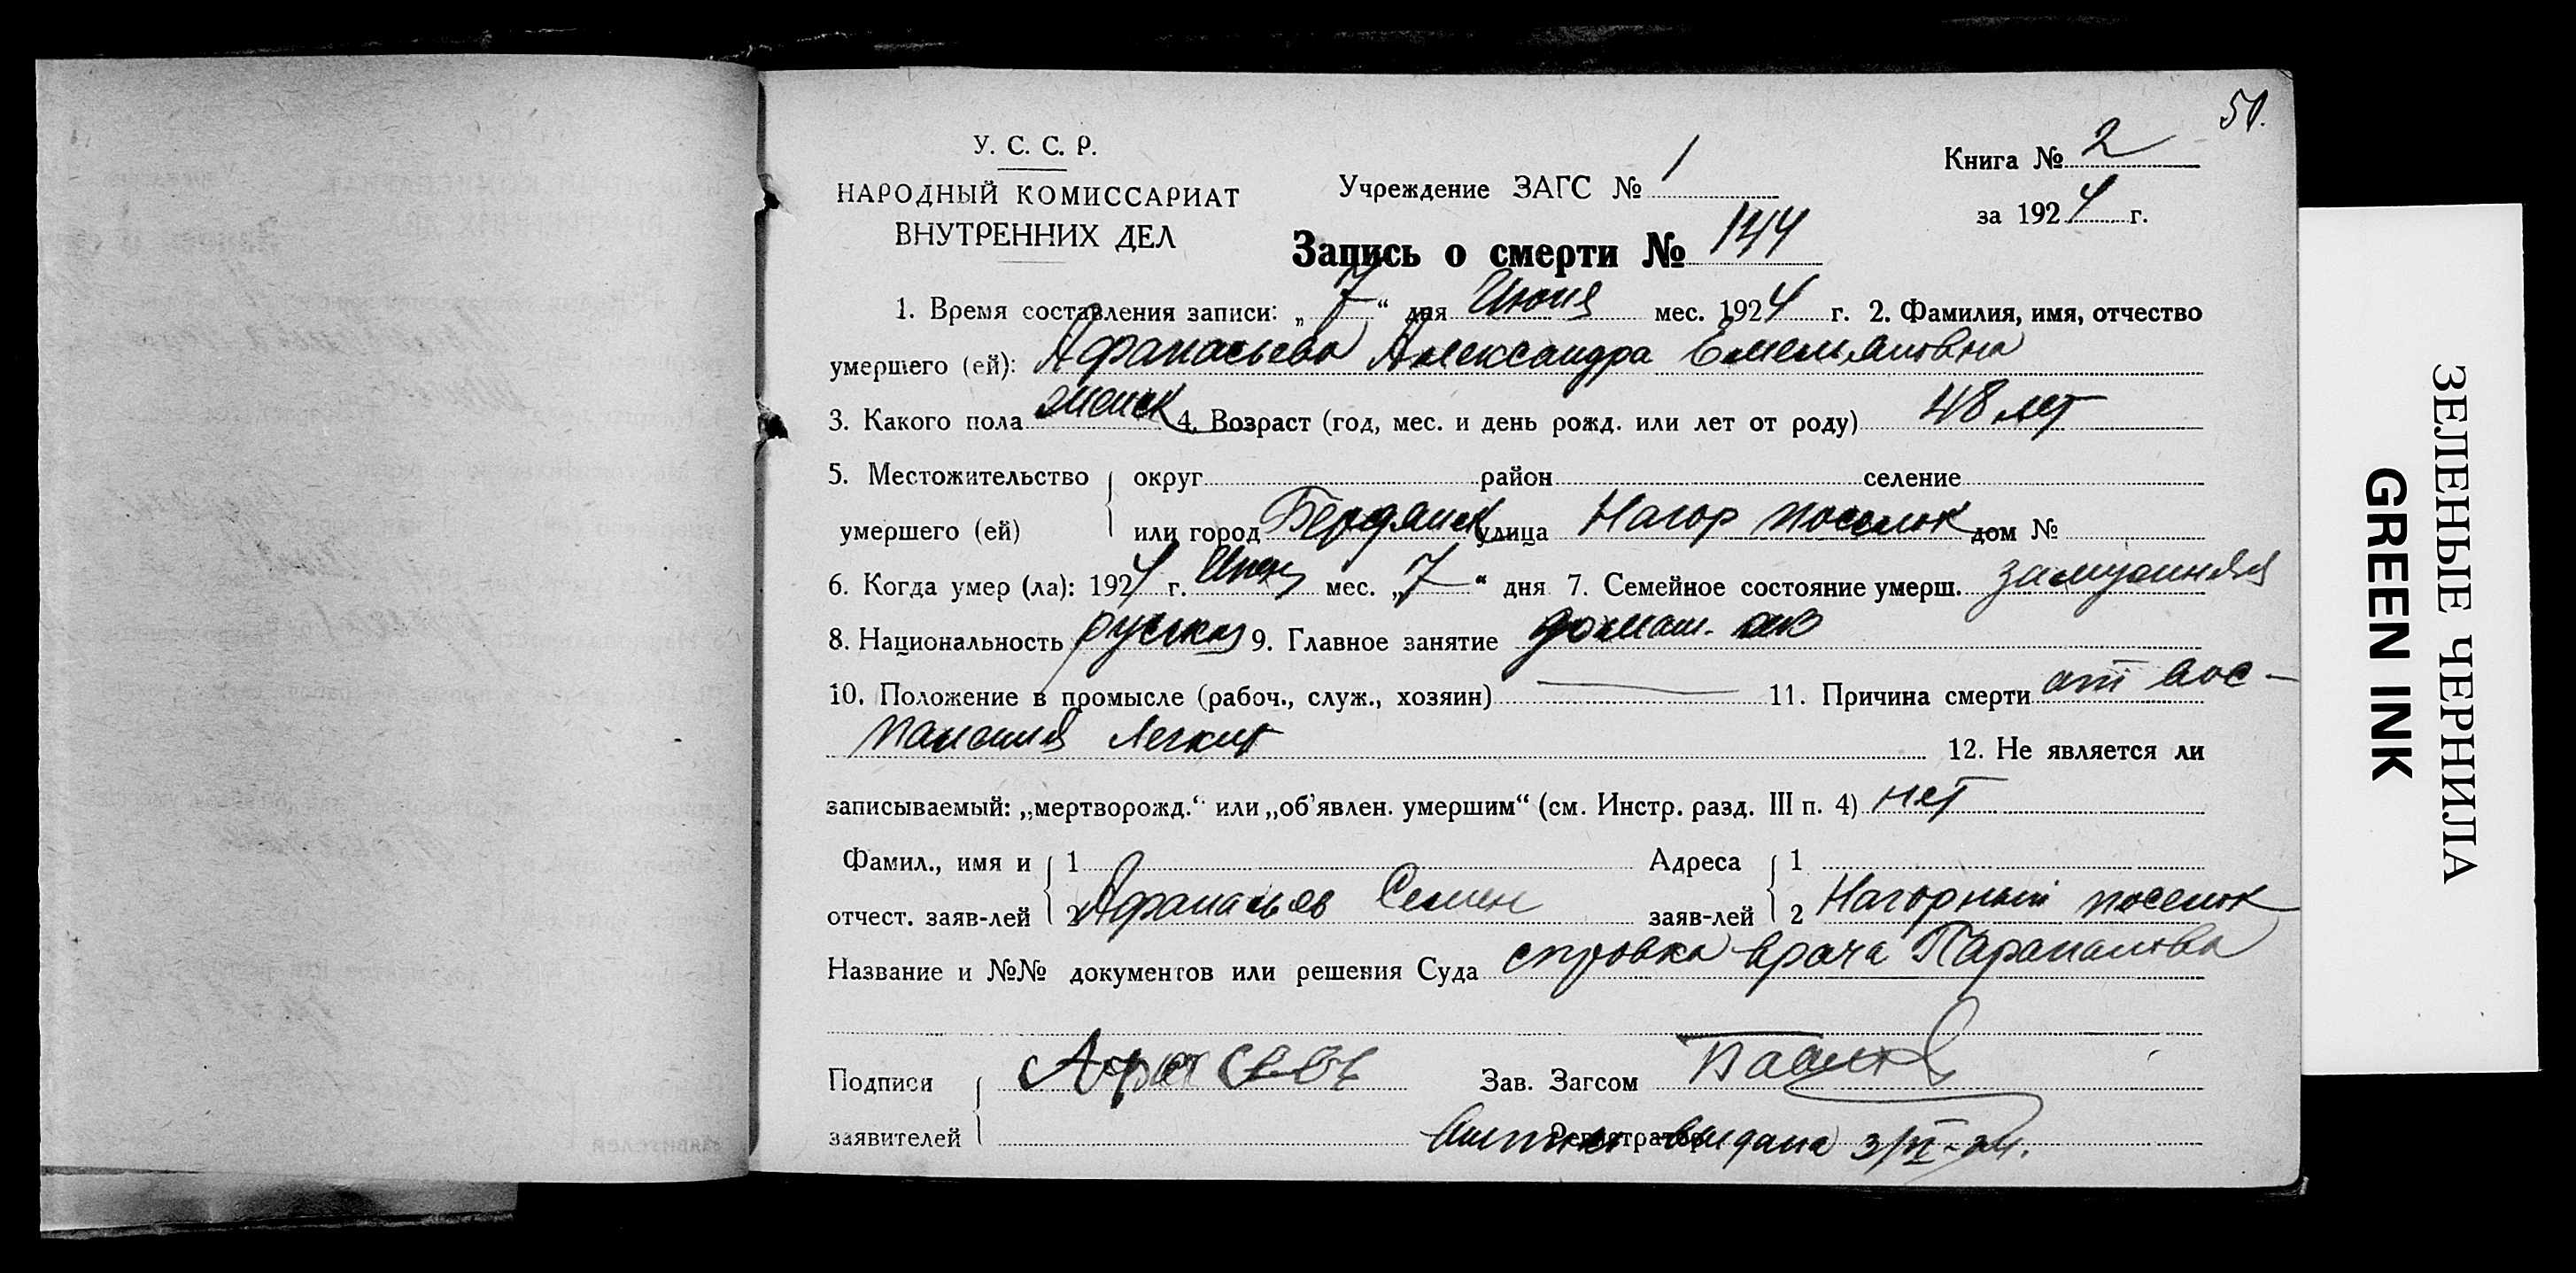 50.
У. С. С. Р.
НАРОДНЫЙ КОМИССАРИАТ
ВНУТРЕННИХ ДЕЛ
Учреждение ЗАГС № 1
Книга № 2
за 1924 г.
Запись о смерти № 144
1. Время составления записи: „7“ дня Июня мес. 1924 г. 2. Фамилия, имя, отчество
умершего (ей): Афанасьева Александра Емельяновна
3. Какого пола женск 4. Возраст (год, мес. и день рожд. или лет от роду) 48 лет
5. Местожительство округ район селение
умершего (ей) или город Бердянск улица Нагор поселок дом №
6. Когда умер (ла): 1924 г. Июня мес. „7“ дня 7. Семейное состояние умерш. замужняя
8. Национальность русская 9. Главное занятие домаш.
10. Положение в промысле (рабоч., служ., хозяин) — 11. Причина смерти от вос-
паления легких 12. Не является ли
записываемый: „мертворожд.“ или „об’явлен. умершим“ (см. Инстр. разд. III п. 4) нет
Фамил., имя и 1 Адреса 1
отчест. заяв-лей 2 Афанасьев Семен заяв-лей 2 Нагорный поселок
Название и №№ документов или решения Суда справка врача
Подписи Зав. Загсом
заявителей Регистратор выдана
ЗЕЛЕНЫЕ ЧЕРНИЛА
GREEN INK